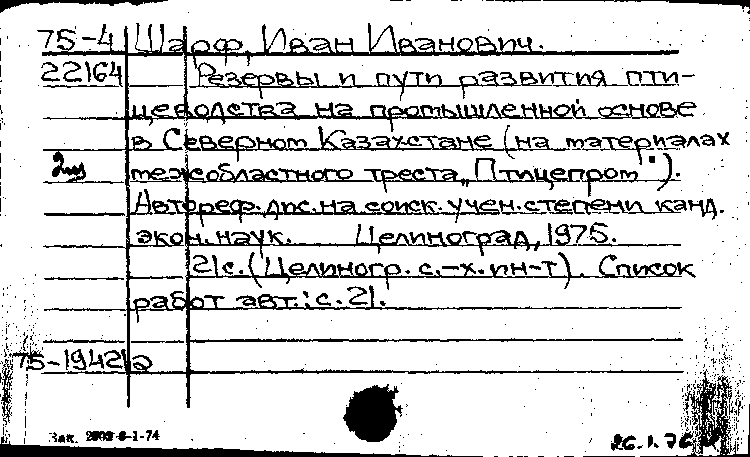 75-4 Шарф, Иван Иванович.
22164 Резервы и пути развития пти-
цеводства на промышленной основе
в Северном Казахстане (на материалах
2ш межобластного треста „Птицепром").
Автореф. дис. на соиск. учен. степени канд.
экон. наук. Целиноград, 1975.
21с. (Целиногр. с.-х. ин-т). Список
работ авт.: с. 21.
75-19421а
Зак. 2902 6-1-74
26.1.76